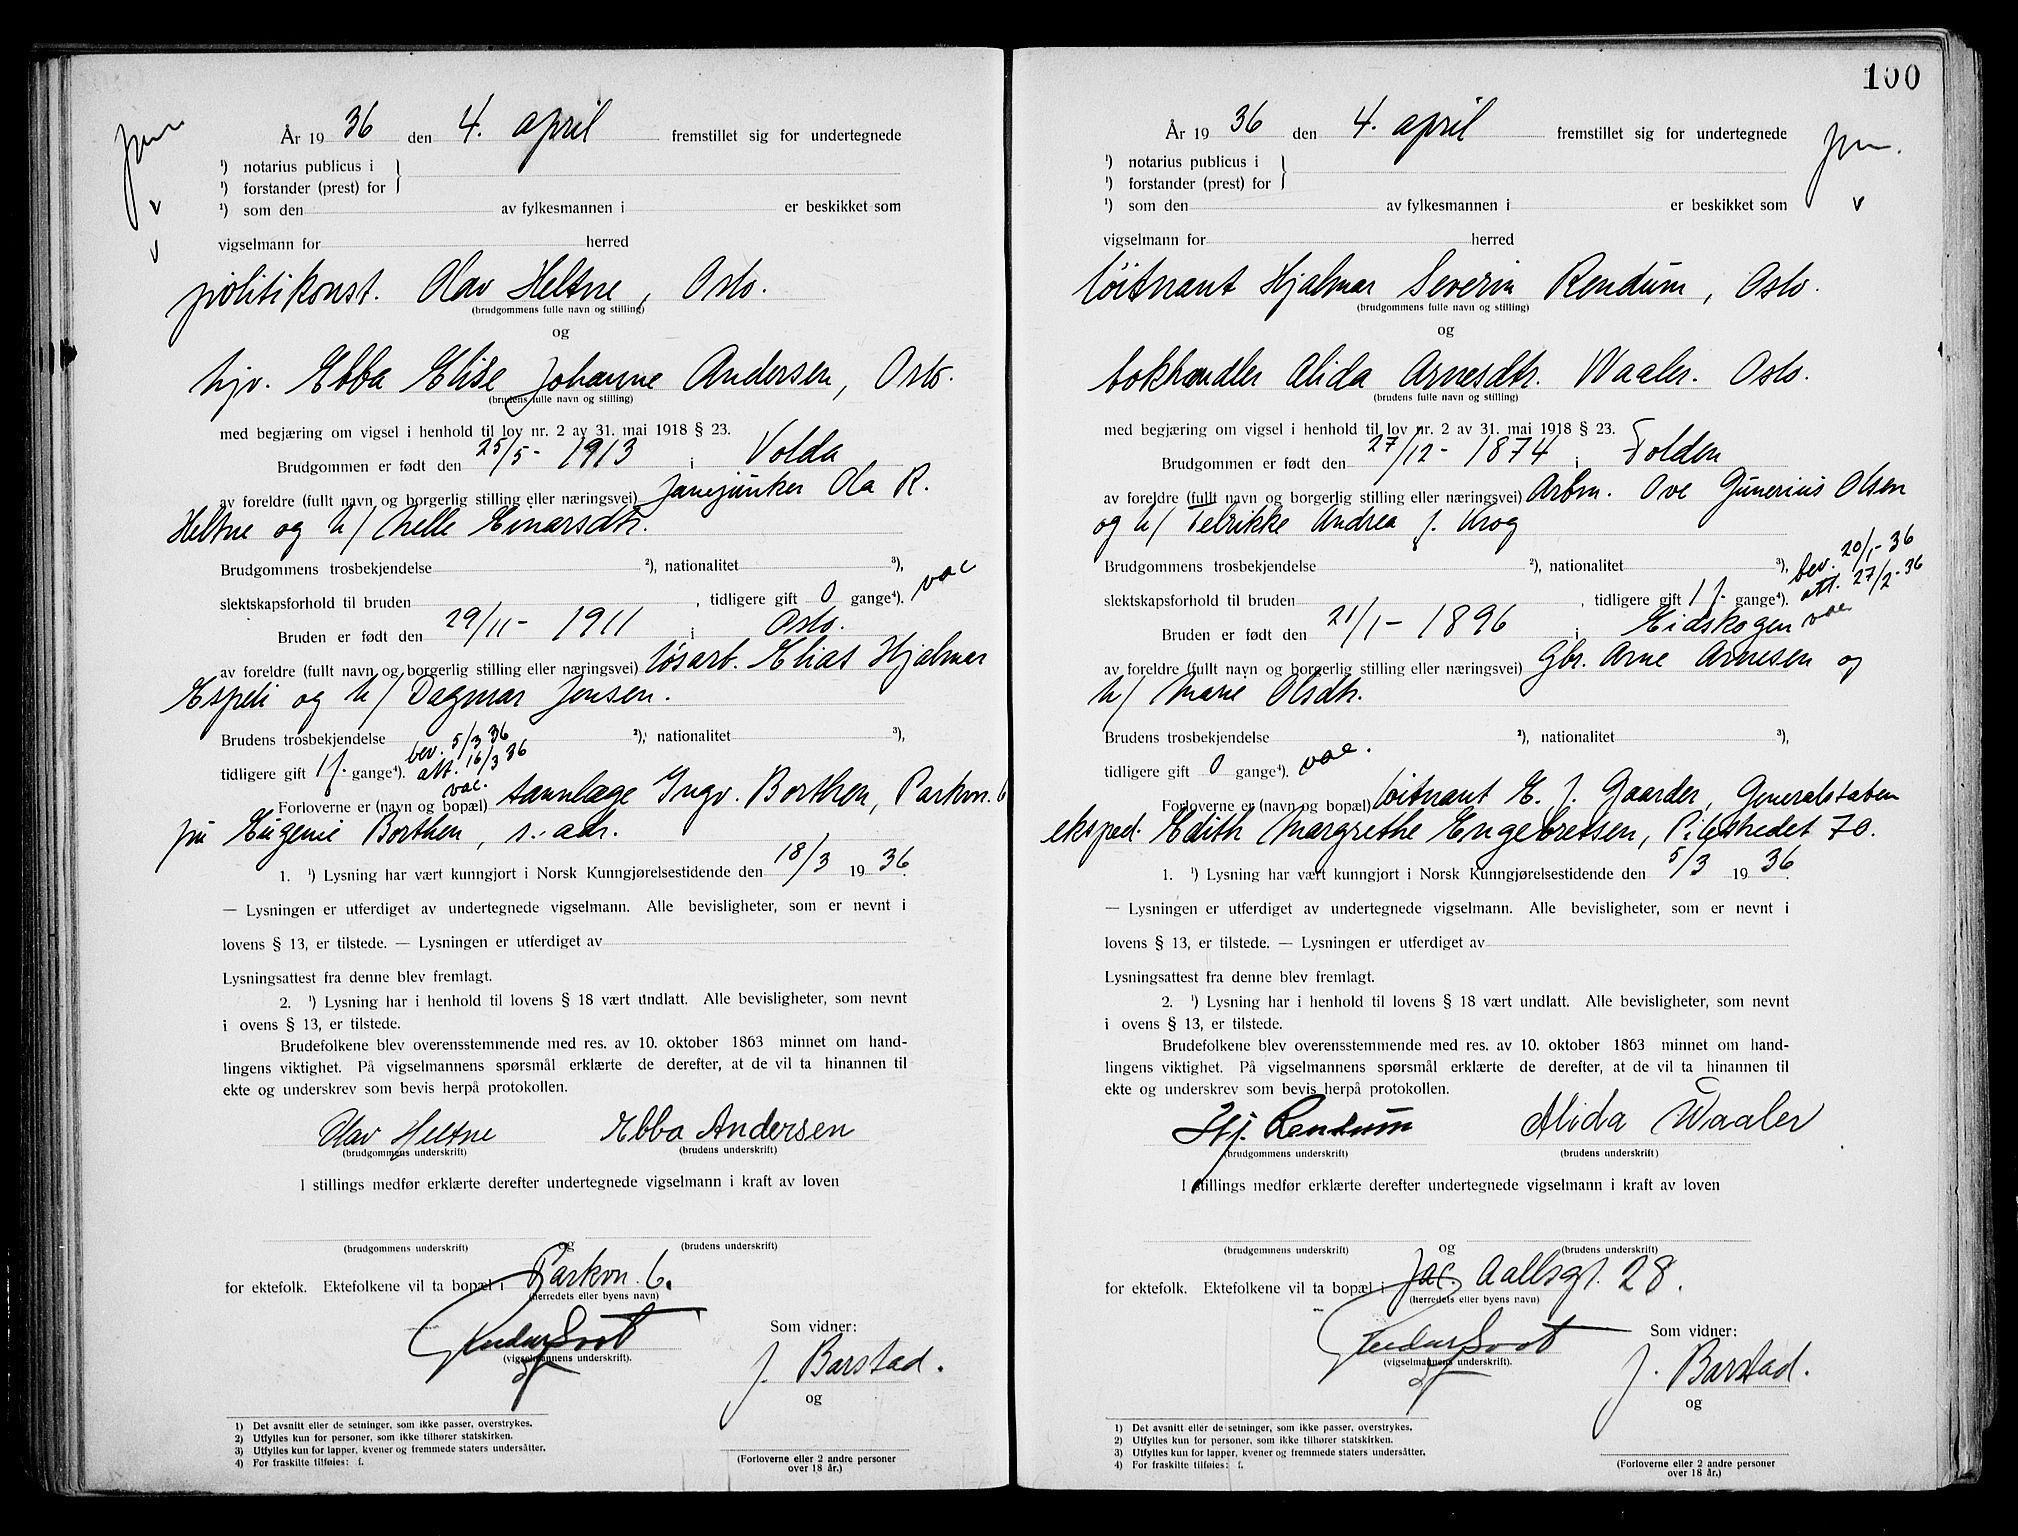 År 1936 den 4. april fremstillet sig for undertegnede
¹) notarius publicus i
¹) forstander (prest) for
¹) som den av fylkesmannen i er beskikket som
vigselmann for herred
politikonst. Olav Heltne, Oslo.
(brudgommens fulle navn og stilling)
og
hjv. Ebba Elise Johanne Andersen, Oslo.
(brudens fulle navn og stilling)
med begjæring om vigsel i henhold til lov nr. 2 av 31. mai 1918 § 23.
Brudgommen er født den 25/5- 1913 i Volda
av foreldre (fullt navn og borgerlig stilling eller næringsvei) Ola R.
Heltne og h/ Einarsdtr.
Brudgommens trosbekjendelse ²), nationalitet ³),
slektskapsforhold til bruden , tidligere gift 0 gange⁴). vac
Bruden er født den 29/11- 1911 i Oslo.
av foreldre (fullt navn og borgerlig stilling eller næringsvei) løsarb. Elias Hjalmar
Espeli og h/ Dagmar Jensen.
Brudens trosbekjendelse ²), nationalitet ³),
bev. 5/3 36
tidligere gift 1 f. gange⁴). att. 16/3 36
vac.
Forloverne er (navn og bopæl) tannlæge Ingv. Borthen, Parkvn. 6
fru Eugenie Borthen, s. adr.
1. ¹) Lysning har vært kunngjort i Norsk Kunngjørelsestidende den 18/3 1936.
— Lysningen er utferdiget av undertegnede vigselmann. Alle bevisligheter, som er nevnt i
lovens § 13, er tilstede. — Lysningen er utferdiget av
Lysningsattest fra denne blev fremlagt.
2. ¹) Lysning har i henhold til lovens § 18 vært undlatt. Alle bevisligheter, som nevnt
i ovens § 13, er tilstede.
Brudefolkene blev overensstemmende med res. av 10. oktober 1863 minnet om hand-
lingens viktighet. På vigselmannens spørsmål erklærte de derefter, at de vil ta hinannen til
ekte og underskrev som bevis herpå protokollen.
Olav Heltne Ebba Andersen
(brudgommens underskrift) (brudens underskrift)
I stillings medfør erklærte derefter undertegnede vigselmann i kraft av loven
og
(brudgommens underskrift) (brudens underskrift)
for ektefolk. Ektefolkene vil ta bopæl i Parkvn. 6.
(herredets eller byens navn)
Som vidner:
(vigselmannens underskrift).
J. Barstad.
og
(Forloverne eller 2 andre personer
over 18 år.)
1) Det avsnitt eller de setninger, som ikke passer, overstrykes.
2) Utfylles kun for personer, som ikke tilhører statskirken.
3) Utfylles kun for lapper, kvener og fremmede staters undersåtter.
4) For fraskilte tilføies: f.
100
År 1936 den 4. april fremstillet sig for undertegnede
¹) notarius publicus i
¹) forstander (prest) for
¹) som den av fylkesmannen i er beskikket som
vigselmann for herred
løitnant Hjalmar Severin Rendum, Oslo.
(brudgommens fulle navn og stilling)
og
bokhandler Alida Arnesdtr. Waaler. Oslo.
(brudens fulle navn og stilling)
med begjæring om vigsel i henhold til lov nr. 2 av 31. mai 1918 § 23.
Brudgommen er født den 27/12- 1874 i Folden
av foreldre (fullt navn og borgerlig stilling eller næringsvei) Arbm. Ove Gunerius Olsen
og h/ Andrea f. Krog
Brudgommens trosbekjendelse ²), nationalitet ³), bev. 20/1- 36
slektskapsforhold til bruden , tidligere gift 1 f. gange⁴). att. 27/2- 36
Bruden er født den 21/1- 1896 i Eidskogen vac
av foreldre (fullt navn og borgerlig stilling eller næringsvei) Gbr. Arne Arnesen og
h/ Marie Olsdtr.
Brudens trosbekjendelse ²), nationalitet ³),
tidligere gift 0 gange⁴). vac.
Forloverne er (navn og bopæl) løitnant E. J. Gaarder, Generalstaben
eksped. Edith Margrethe Engebretsen, Pilestredet 70.
1. ¹) Lysning har vært kunngjort i Norsk Kunngjørelsestidende den 5/3 1936.
— Lysningen er utferdiget av undertegnede vigselmann. Alle bevisligheter, som er nevnt i
lovens § 13, er tilstede. — Lysningen er utferdiget av
Lysningsattest fra denne blev fremlagt.
2. ¹) Lysning har i henhold til lovens § 18 vært undlatt. Alle bevisligheter, som nevnt
i ovens § 13, er tilstede.
Brudefolkene blev overensstemmende med res. av 10. oktober 1863 minnet om hand-
lingens viktighet. På vigselmannens spørsmål erklærte de derefter, at de vil ta hinannen til
ekte og underskrev som bevis herpå protokollen.
Hj. Rendum Alida Waaler
(brudgommens underskrift) (brudens underskrift)
I stillings medfør erklærte derefter undertegnede vigselmann i kraft av loven
og
(brudgommens underskrift) (brudens underskrift)
for ektefolk. Ektefolkene vil ta bopæl i Jac. Aallsgt. 28.
(herredets eller byens navn)
Som vidner:
(vigselmannens underskrift).
J. Barstad.
og
(Forloverne eller 2 andre personer
over 18 år.)
1) Det avsnitt eller de setninger, som ikke passer, overstrykes.
2) Utfylles kun for personer, som ikke tilhører statskirken.
3) Utfylles kun for lapper, kvener og fremmede staters undersåtter.
4) For fraskilte tilføies: f.